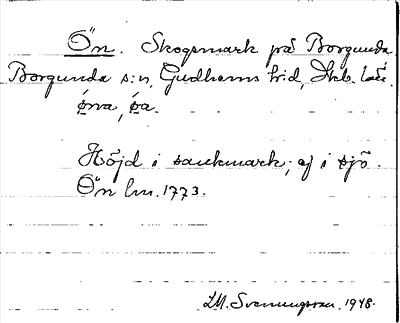 Ön. Skogsmark på Borgunda
Borgunda s:n, Gudhems hrd, Skb. län.
Höjd i sankmark; ej i sjö.
Ön lm. 1773.
1948.